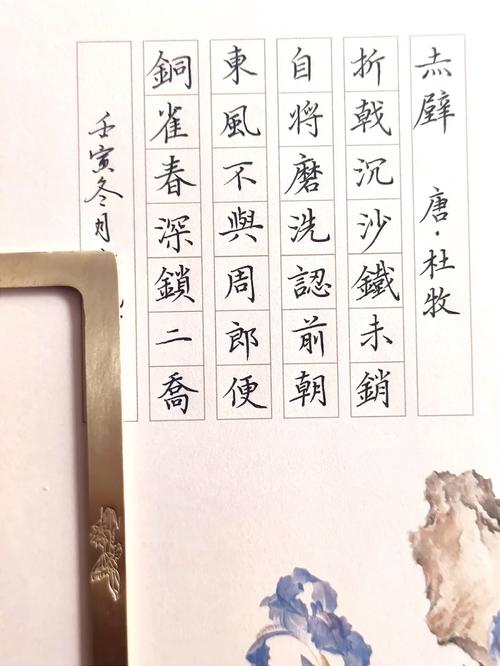 赤壁 唐·杜牧
折戟沉沙鐵未銷
自将磨洗認前朝
東風不與周郎便
銅雀春深鎖二喬
壬寅冬月